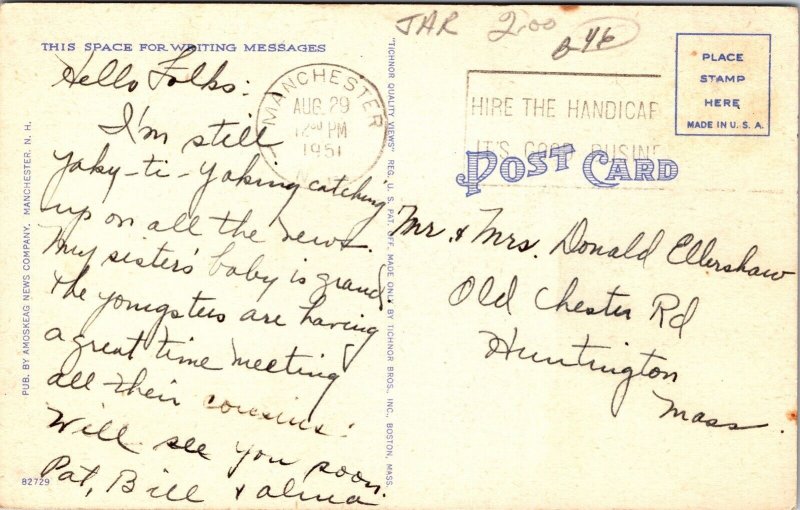 JAR 2.00
B46
THIS SPACE FOR WRITING MESSAGES
Hello Folks:
I'm still
yaky-ti-yaking catching
up on all the news.
My sisters' baby is grand.
The youngsters are having
a great time meeting
all their cousins.
Will see you soon.
Pat, Bill & Alma
82729
PUB. BY AMOSKEAG NEWS COMPANY, MANCHESTER, N. H.
"TICHNOR QUALITY VIEWS" REG. U. S. PAT. OFF. MADE ONLY BY TICHNOR BROS. INC., BOSTON, MASS.
MANCHESTER
AUG 29
12 00 PM
1951
HIRE THE HANDICAP
IT'S GOOD BUSINE
PLACE
STAMP
HERE
MADE IN U. S. A.
POST CARD
Mr. & Mrs. Donald Ellershaw
Old Chester Rd
Huntington
Mass.